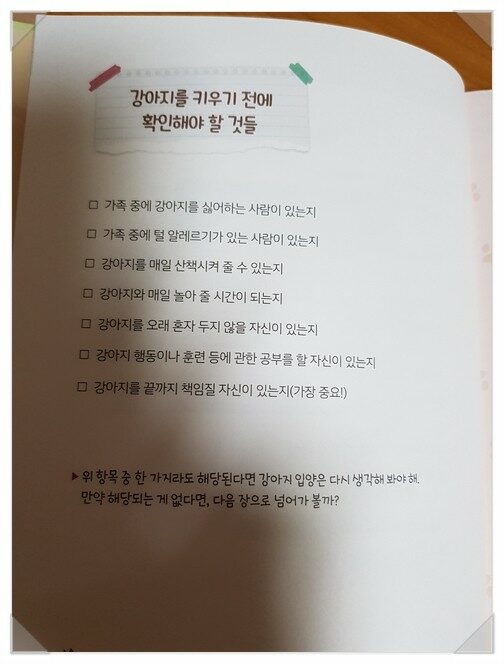 강아지를 키우기 전에
확인해야 할 것들
□ 가족 중에 강아지를 싫어하는 사람이 있는지
□ 가족 중에 털 알레르기가 있는 사람이 있는지
□ 강아지를 매일 산책시켜 줄 수 있는지
□ 강아지와 매일 놀아 줄 시간이 되는지
□ 강아지를 오래 혼자 두지 않을 자신이 있는지
□ 강아지 행동이나 훈련 등에 관한 공부를 할 자신이 있는지
□ 강아지를 끝까지 책임질 자신이 있는지(가장 중요!)
▶ 위 항목 중 한 가지라도 해당된다면 강아지 입양은 다시 생각해 봐야 해.
만약 해당되는 게 없다면, 다음 장으로 넘어가 볼까?